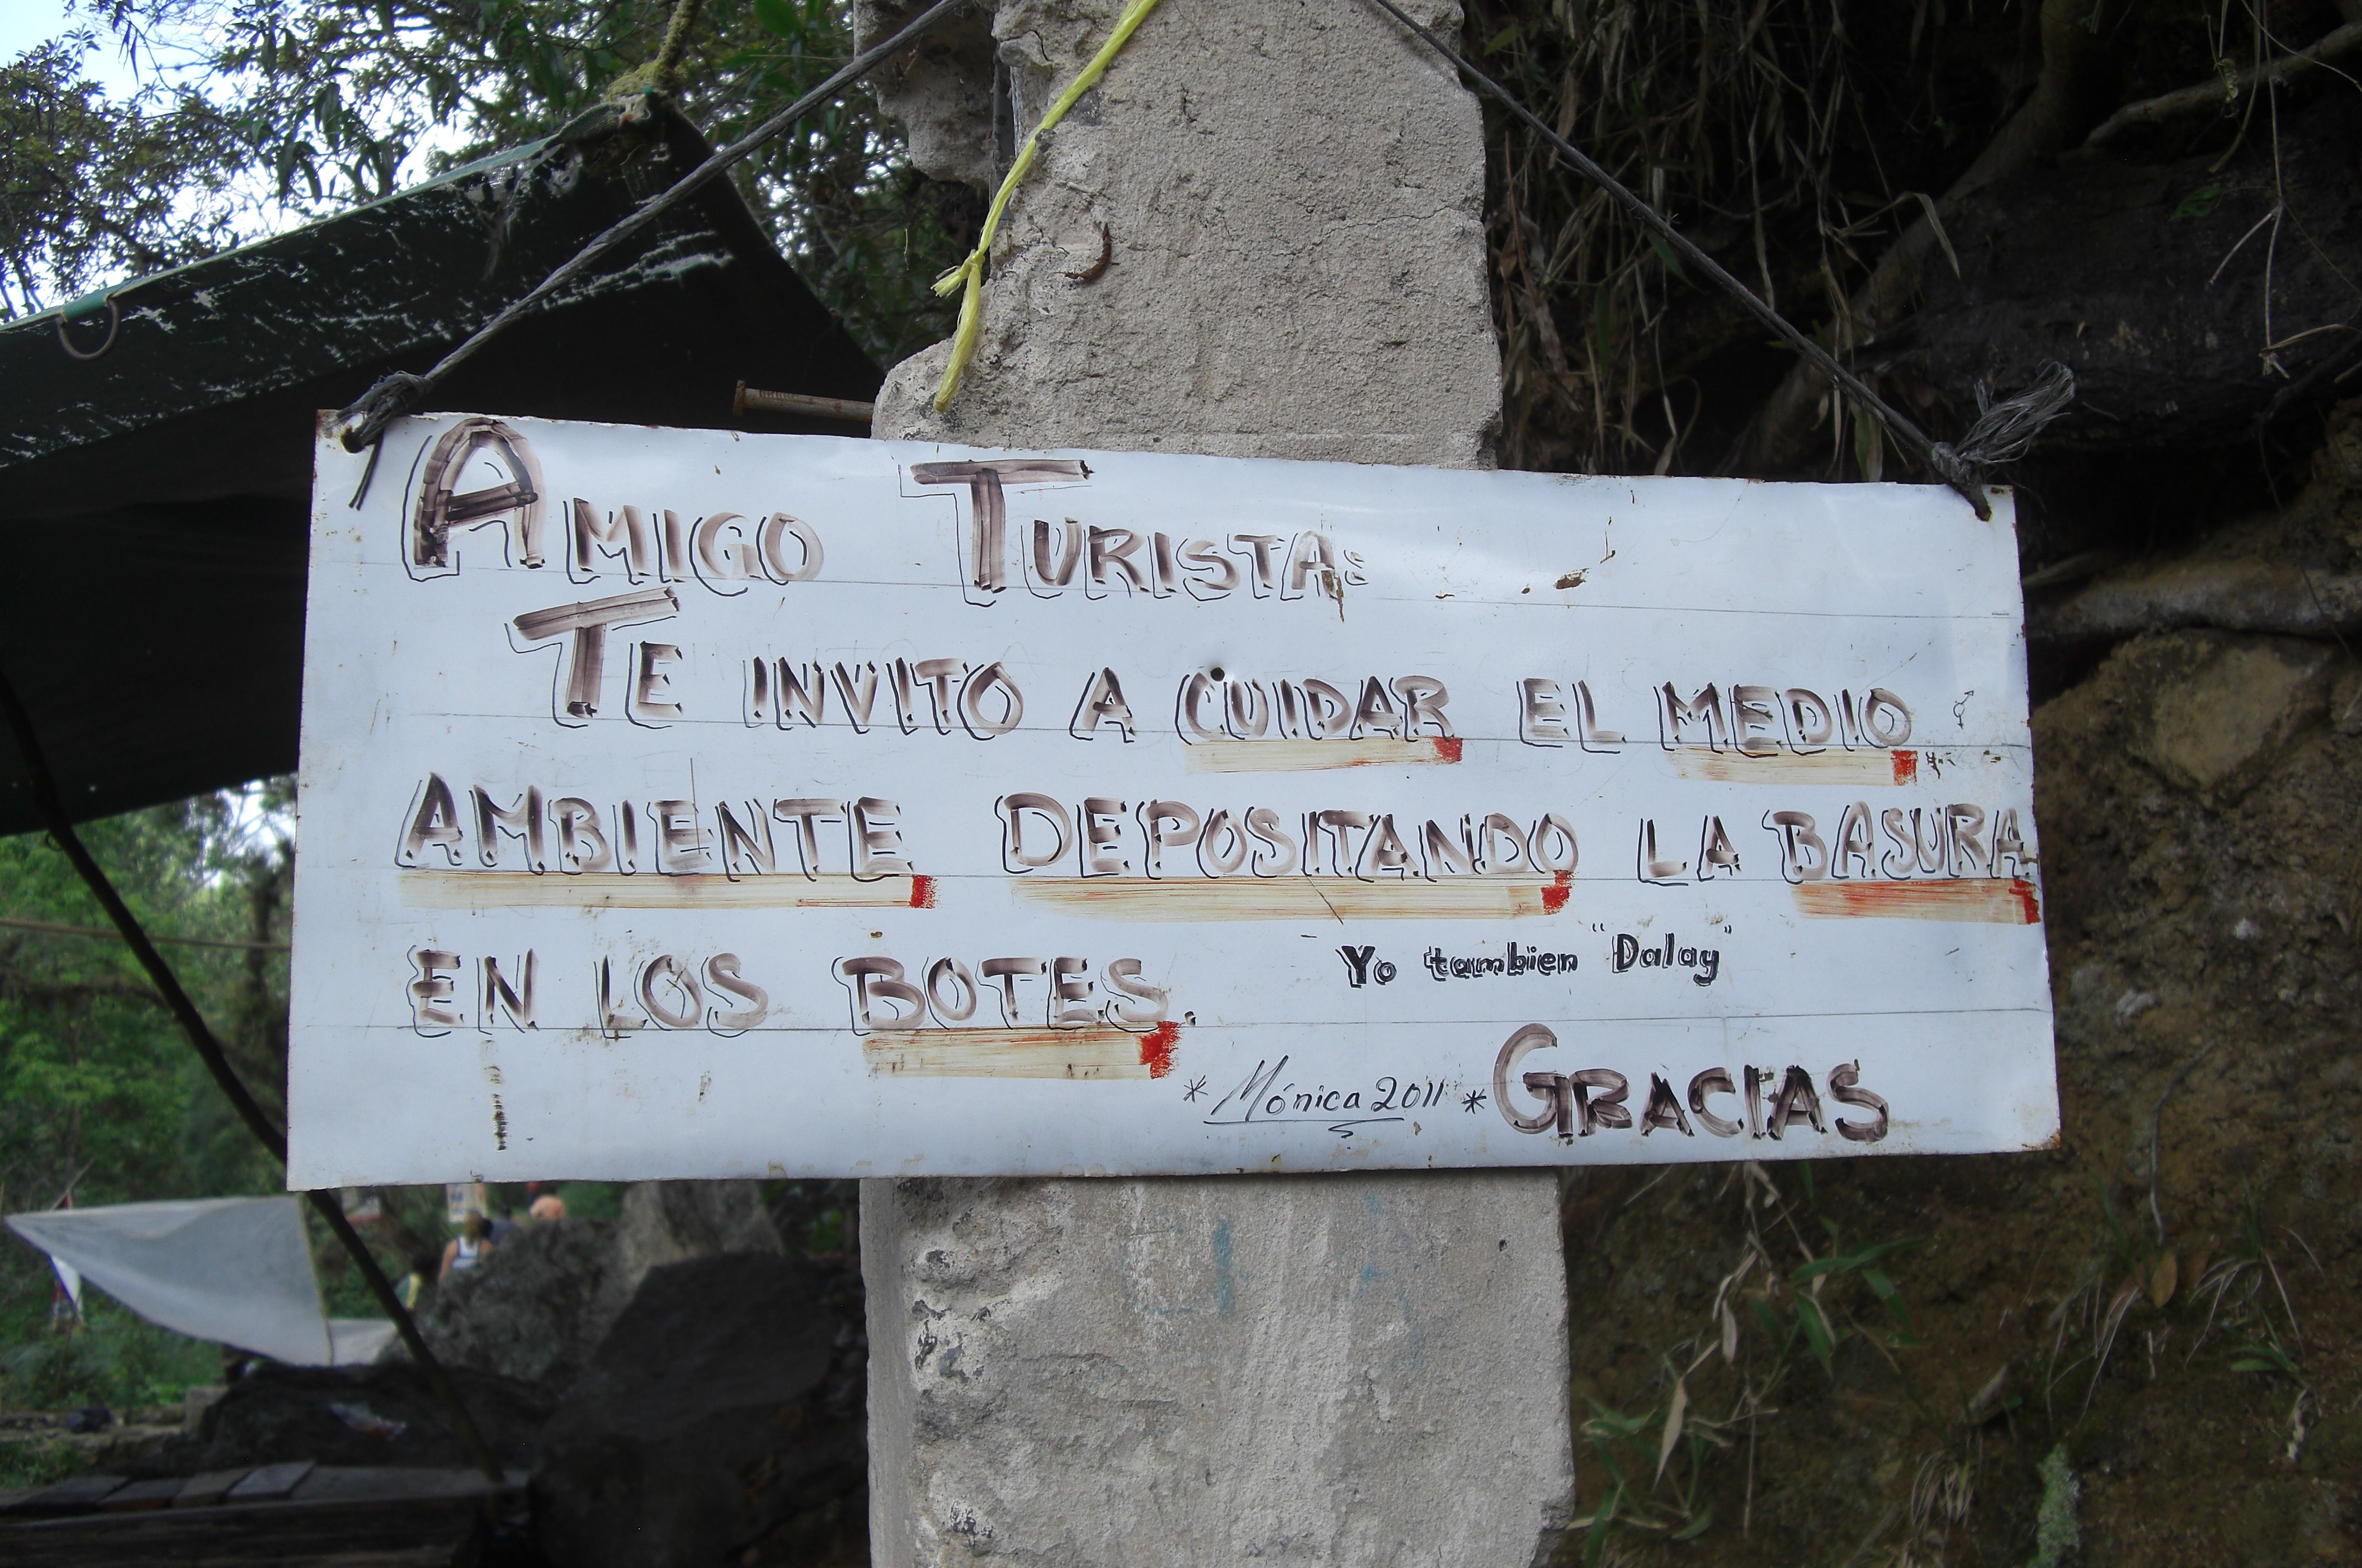 AMIGO TURISTA:
TE INVITO A CUIDAR EL MEDIO
AMBIENTE DEPOSITANDO LA BASURA
EN LOS BOTES.
Yo tambien "Dalay"
* Mónica 2011 * GRACIAS